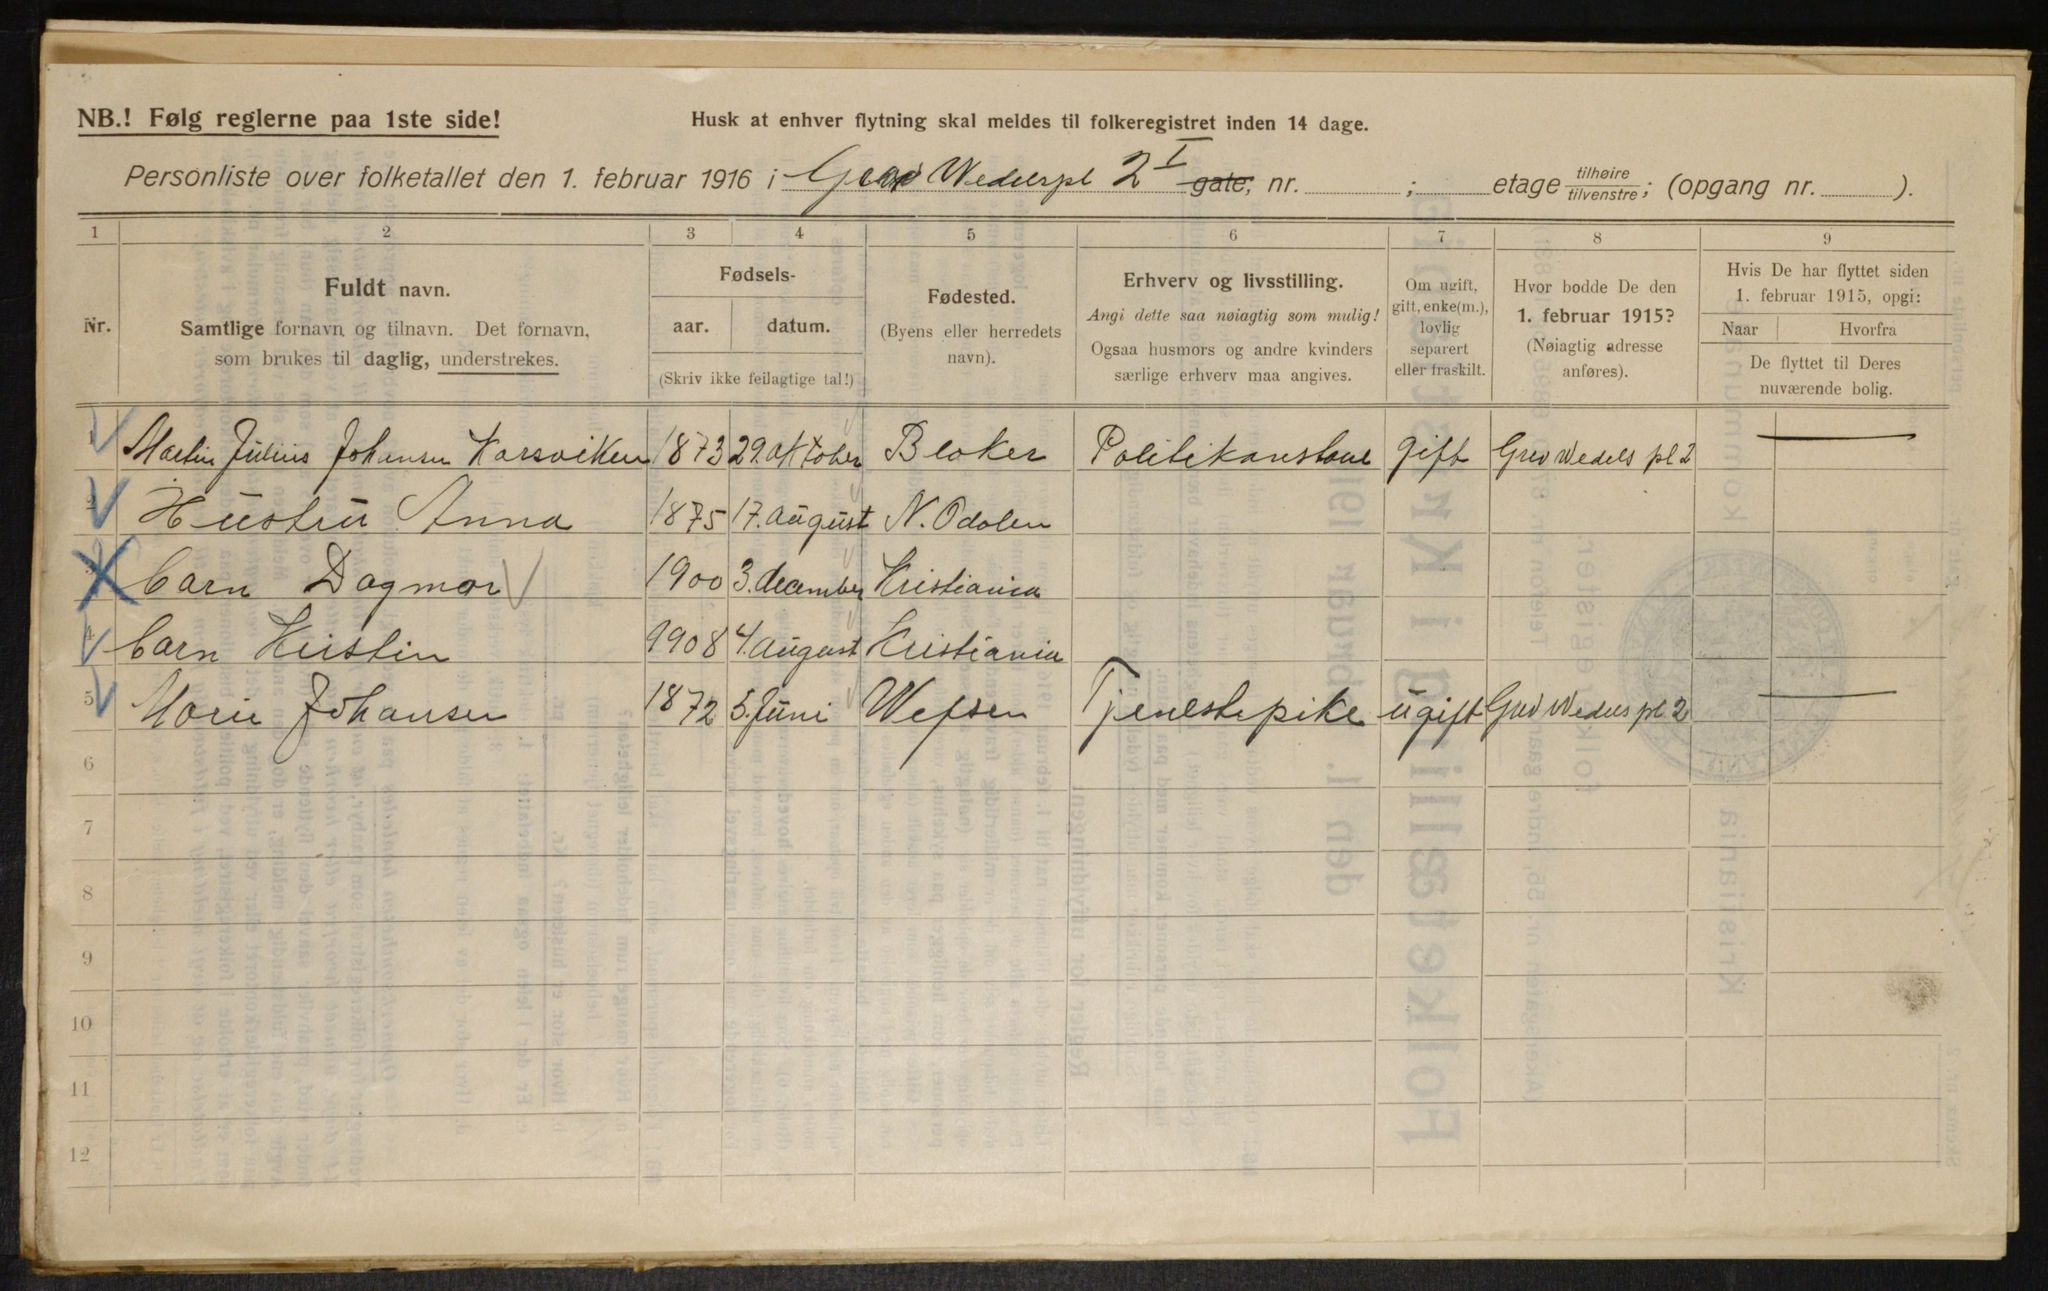 NB.! Følg reglerne paa 1ste side!
Husk at enhver flytning skal meldes til folkeregistret inden 14 dage.
Personliste over folketallet den 1. februar 1916 i Grev Wedelspl 2 I gate, nr. ; etage tilhøire tilvenstre; (opgang nr. ).
1 2 3 4 5 6 7 8 9
Nr.
Fuldt navn.
Samtlige fornavn og tilnavn. Det fornavn,
som brukes til daglig, understrekes.
Fødsels-
aar. datum.
(Skriv ikke feilagtige tal!)
Fødested.
(Byens eller herredets
navn).
Erhverv og livsstilling.
Angi dette saa nøiagtig som mulig!
Ogsaa husmors og andre kvinders
særlige erhverv maa angives.
Om ugift,
gift, enke(m.),
lovlig
separert
eller fraskilt.
Hvor bodde De den
1. februar 1915?
(Nøiagtig adresse
anføres).
Hvis De har flyttet siden
1. februar 1915, opgi:
Naar Hvorfra
De flyttet til Deres
nuværende bolig.
1 Martin Julius Johansen Korsviken 1873 29. oktober Blaker Politikonstabel gift Grev Wedels pl 2
2 Hustru Anna 1875 17. august N. Odalen
3 barn Dagmar 1900 3. december Kristiania
4 barn Kristin 1908 4. august Kristiania
5 Marie Johansen 1872 5. Juni Wefsen Tjenestepike ugift Grev Wedels pl 2
6
7
8
9
10
11
12